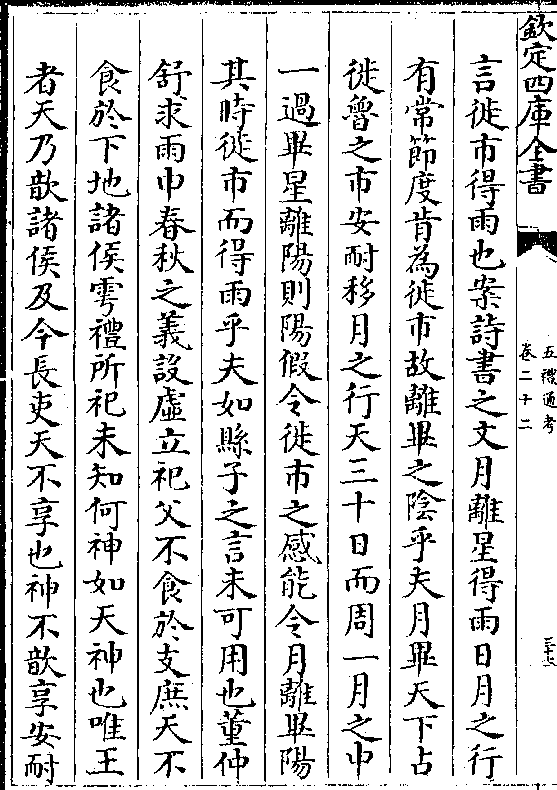 欽定四庫全書
五禮通考
卷二十二
三十三
言徙市得雨也案詩書之文月離星得雨日月之行
有常節度肯為徙市故離畢之陰乎夫月畢天下占
徙魯之市安耐移月之行天三十日而周一月之中
一過畢星離陽則陽假令徙市之感能令月離畢陽
其時徙市而得雨乎夫如縣子之言未可用也董仲
舒求雨巾春秋之義設虛立祀父不食於支庶天不
食於下地諸侯雩禮所祀未知何神如天神也唯王
者天乃歆諸侯及今長吏天不享也神不歆享安耐